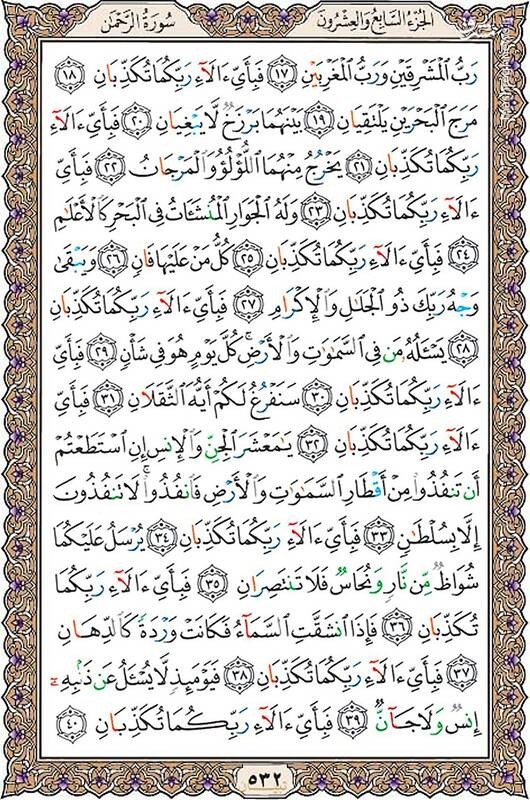 الجزء السابع والعشرون
سورة الرحمان
رَبُّ ٱلۡمَشۡرِقَيۡنِ وَرَبُّ ٱلۡمَغۡرِبَيۡنِ ﴿١٧﴾ فَبِأَيِّ ءَالَآءِ رَبِّكُمَا تُكَذِّبَانِ ﴿١٨﴾
مَرَجَ ٱلۡبَحۡرَيۡنِ يَلۡتَقِيَانِ ﴿١٩﴾ بَيۡنَهُمَا بَرۡزَخٞ لَّا يَبۡغِيَانِ ﴿٢٠﴾ فَبِأَيِّ ءَالَآءِ
رَبِّكُمَا تُكَذِّبَانِ ﴿٢١﴾ يَخۡرُجُ مِنۡهُمَا ٱللُّؤۡلُؤُ وَٱلۡمَرۡجَانُ ﴿٢٢﴾ فَبِأَيِّ
ءَالَآءِ رَبِّكُمَا تُكَذِّبَانِ ﴿٢٣﴾ وَلَهُ ٱلۡجَوَارِ ٱلۡمُنشَـَٔاتُ فِي ٱلۡبَحۡرِ كَٱلۡأَعۡلَٰمِ
﴿٢٤﴾ فَبِأَيِّ ءَالَآءِ رَبِّكُمَا تُكَذِّبَانِ ﴿٢٥﴾ كُلُّ مَنۡ عَلَيۡهَا فَانٖ ﴿٢٦﴾ وَيَبۡقَىٰ
وَجۡهُ رَبِّكَ ذُو ٱلۡجَلَٰلِ وَٱلۡإِكۡرَامِ ﴿٢٧﴾ فَبِأَيِّ ءَالَآءِ رَبِّكُمَا تُكَذِّبَانِ
﴿٢٨﴾ يَسۡـَٔلُهُۥ مَن فِي ٱلسَّمَٰوَٰتِ وَٱلۡأَرۡضِۚ كُلَّ يَوۡمٍ هُوَ فِي شَأۡنٖ ﴿٢٩﴾ فَبِأَيِّ
ءَالَآءِ رَبِّكُمَا تُكَذِّبَانِ ﴿٣٠﴾ سَنَفۡرُغُ لَكُمۡ أَيُّهَ ٱلثَّقَلَانِ ﴿٣١﴾ فَبِأَيِّ
ءَالَآءِ رَبِّكُمَا تُكَذِّبَانِ ﴿٣٢﴾ يَٰمَعۡشَرَ ٱلۡجِنِّ وَٱلۡإِنسِ إِنِ ٱسۡتَطَعۡتُمۡ
أَن تَنفُذُواْ مِنۡ أَقۡطَارِ ٱلسَّمَٰوَٰتِ وَٱلۡأَرۡضِ فَٱنفُذُواْۚ لَا تَنفُذُونَ
إِلَّا بِسُلۡطَٰنٖ ﴿٣٣﴾ فَبِأَيِّ ءَالَآءِ رَبِّكُمَا تُكَذِّبَانِ ﴿٣٤﴾ يُرۡسَلُ عَلَيۡكُمَا
شُوَاظٞ مِّن نَّارٖ وَنُحَاسٞ فَلَا تَنتَصِرَانِ ﴿٣٥﴾ فَبِأَيِّ ءَالَآءِ رَبِّكُمَا
تُكَذِّبَانِ ﴿٣٦﴾ فَإِذَا ٱنشَقَّتِ ٱلسَّمَآءُ فَكَانَتۡ وَرۡدَةٗ كَٱلدِّهَانِ
﴿٣٧﴾ فَبِأَيِّ ءَالَآءِ رَبِّكُمَا تُكَذِّبَانِ ﴿٣٨﴾ فَيَوۡمَئِذٖ لَّا يُسۡـَٔلُ عَن ذَنۢبِهِۦٓ
إِنسٞ وَلَا جَآنّٞ ﴿٣٩﴾ فَبِأَيِّ ءَالَآءِ رَبِّكُمَا تُكَذِّبَانِ ﴿٤٠﴾
٥٣٢